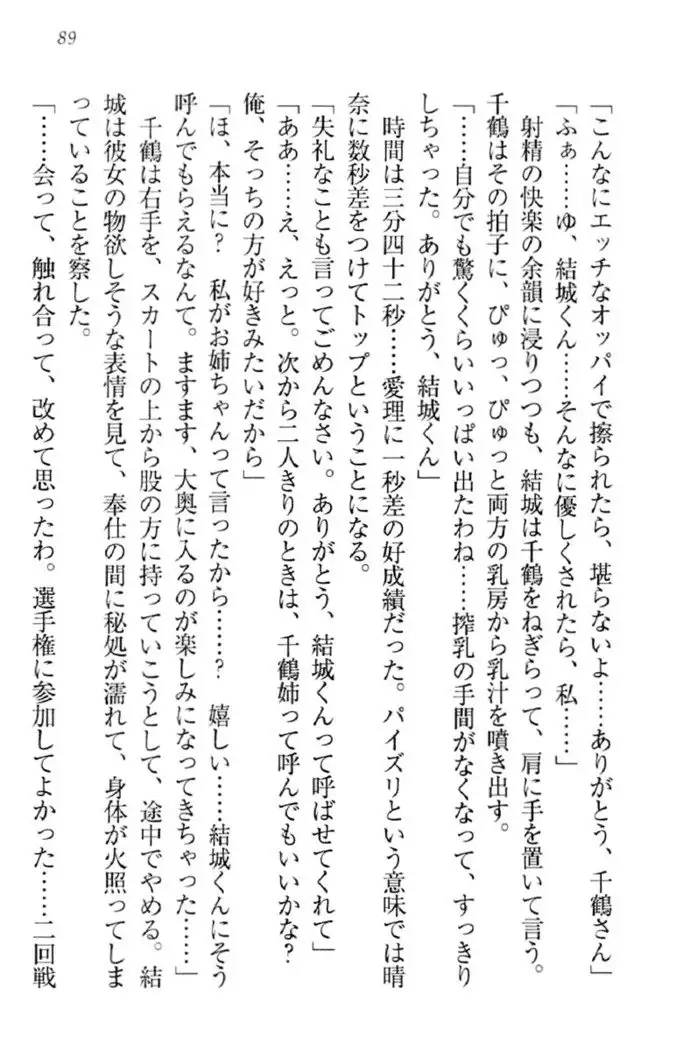 89
「こんなにエッチなオッパイで擦られたら、堪らないよ……ありがとう、千鶴さん」
「ふぁ……ゆ、結城くん……そんなに優しくされたら、私……」
射精の快楽の余韻に浸りつつも、結城は千鶴をねぎらって、肩に手を置いて言う。
千鶴はその拍子に、ぴゅっ、ぴゅっと両方の乳房から乳汁を噴き出す。
「……自分でも驚くくらいいっぱい出たわね……搾乳の手間がなくなって、すっきり
しちゃった。ありがとう、結城くん」
時間は三分四十二秒……愛理に一秒差の好成績だった。パイズリという意味では晴
奈に数秒差をつけてトップということになる。
「失礼なことも言ってごめんなさい。ありがとう、結城くんって呼ばせてくれて」
「ああ……え、えっと。次から二人きりのときは、千鶴姉って呼んでもいいかな？
俺、そっちの方が好きみたいだから」
「ほ、本当に？　私がお姉ちゃんって言ったから……？　嬉しい……結城くんにそう
呼んでもらえるなんて。ますます、大奥に入るのが楽しみになってきちゃった……」
千鶴は右手を、スカートの上から股の方に持っていこうとして、途中でやめる。結
城は彼女の物欲しそうな表情を見て、奉仕の間に秘処が濡れて、身体が火照ってしま
っていることを察した。
「……会って、触れ合って、改めて思ったわ。選手権に参加してよかった……二回戦